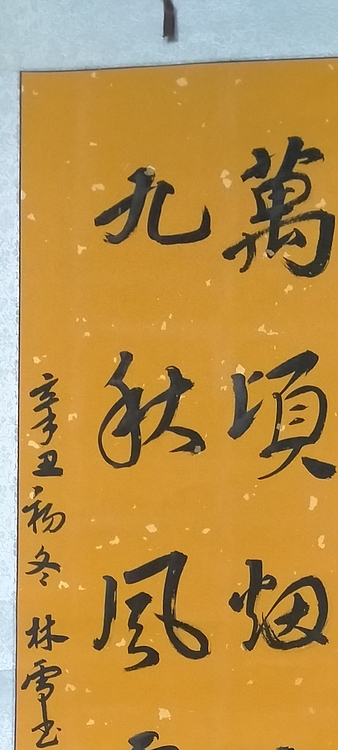 萬頃烟
九秋風
辛丑初冬 林雪书